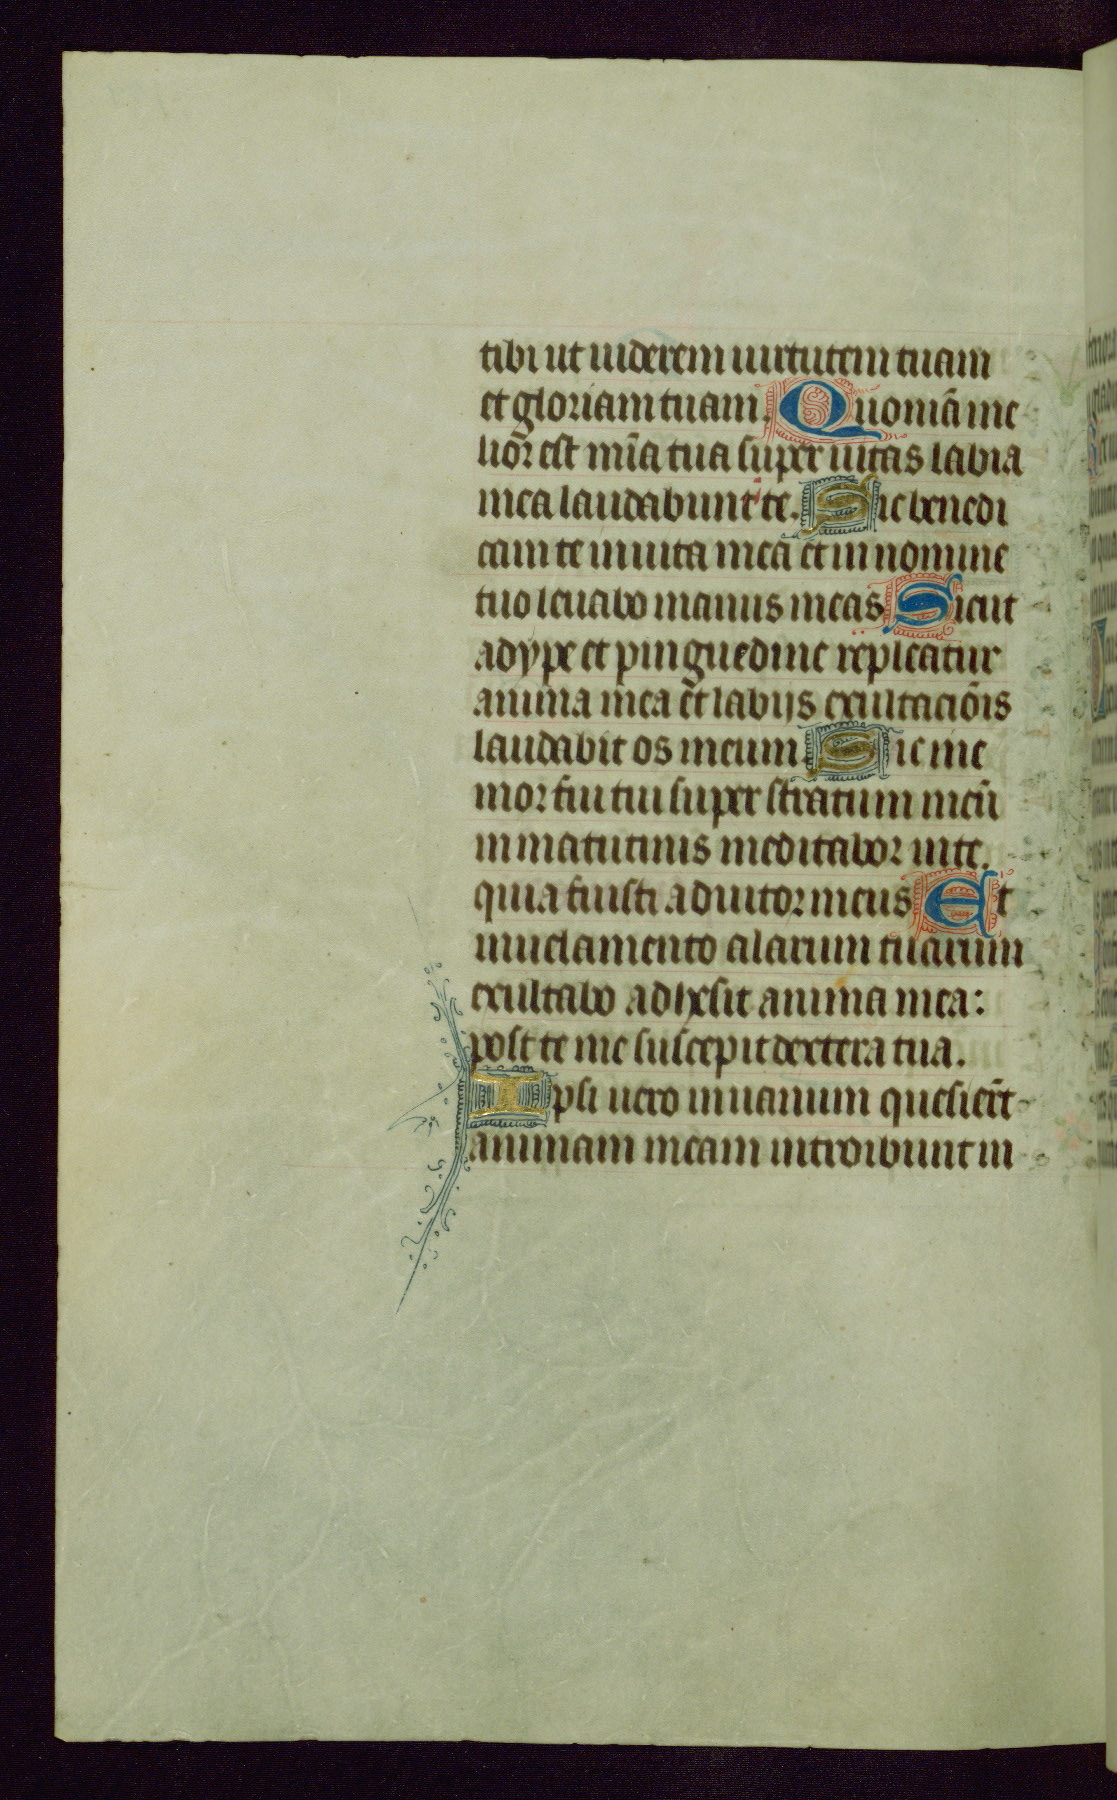 tibi ut uiderem uirtutem tuam
et gloriam tuam. Quoniā me
lior̄ est mīa tua super uitas labia
mea laudabunt te. Sic benedi
cam te in uita mea et in nomine
tuo leuabo manus meas Sicut
adype et pinguedine repleatur
anima mea et labijs exultaciōis
laudabit os meum. Sic me
mor fui tui super stratum meū
in matutinis meditabor in te.
quia fuisti adiutor meus Et
in uelamento alarum tuarum
exultabo adhesit anima mea:
post te me suscepit dextera tua.
Ipsi uero in uanum quesier̄t
animam meam introibunt in